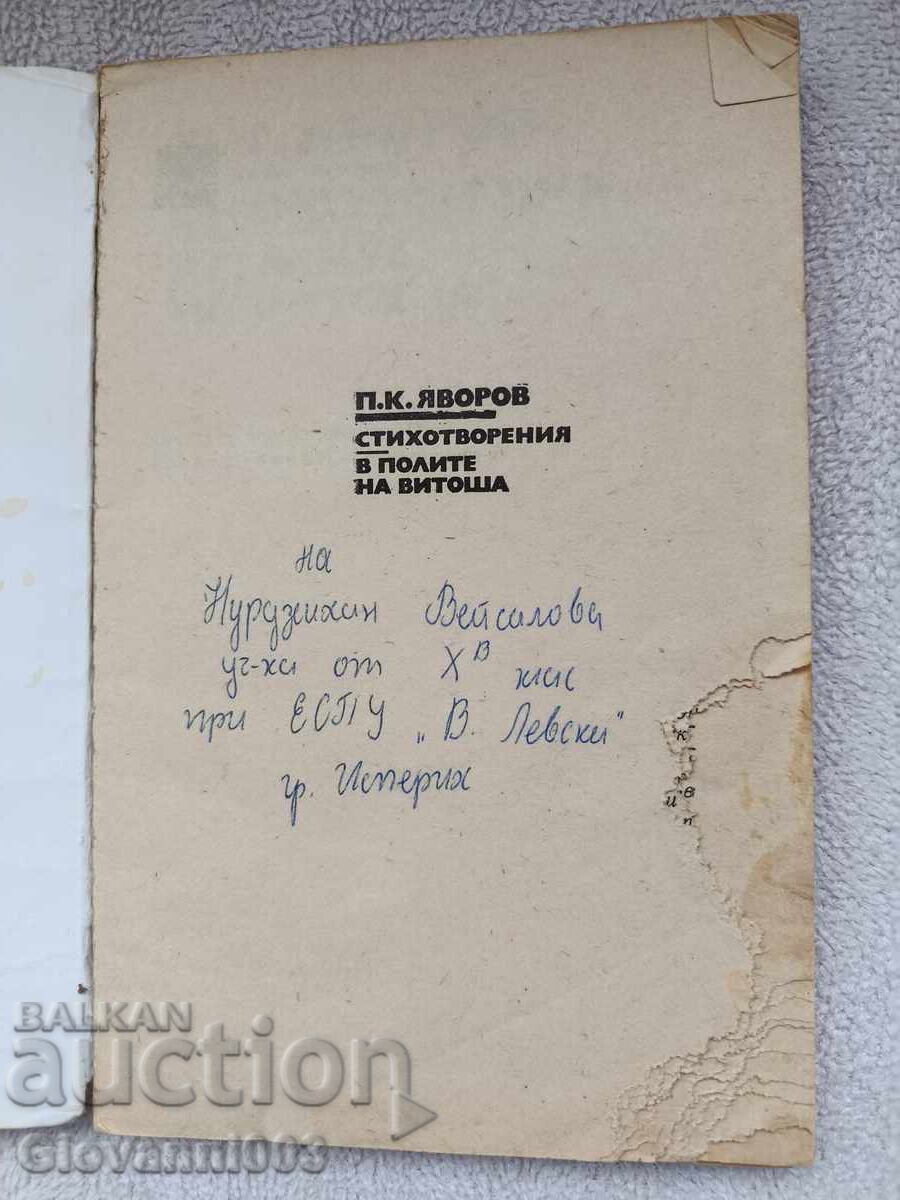 П.К. ЯВОРОВ
СТИХОТВОРЕНИЯ
В ПОЛИТЕ
НА ВИТОША
на
Нурджихан Вейсалова
уч-ка от Xв клас
при ЕСПУ „В. Левски"
гр. Исперих
BALKAN
auction
Giovanni003